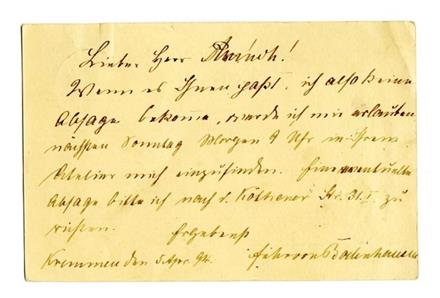 Lieber Herr Arndt!
Wenn es Ihnen paßt, ich also keine
Absage bekome, werde ich mir erlauben
nächsten Sonntag Morgen 9 Uhr in Ihrem
Atelier mich einzufinden. Eine eventuelle
Absage bitte ich nach d. Köthener Str. 31.I. zu
richten. Ergebenst
Kremmen den 5 Apr. 94. von